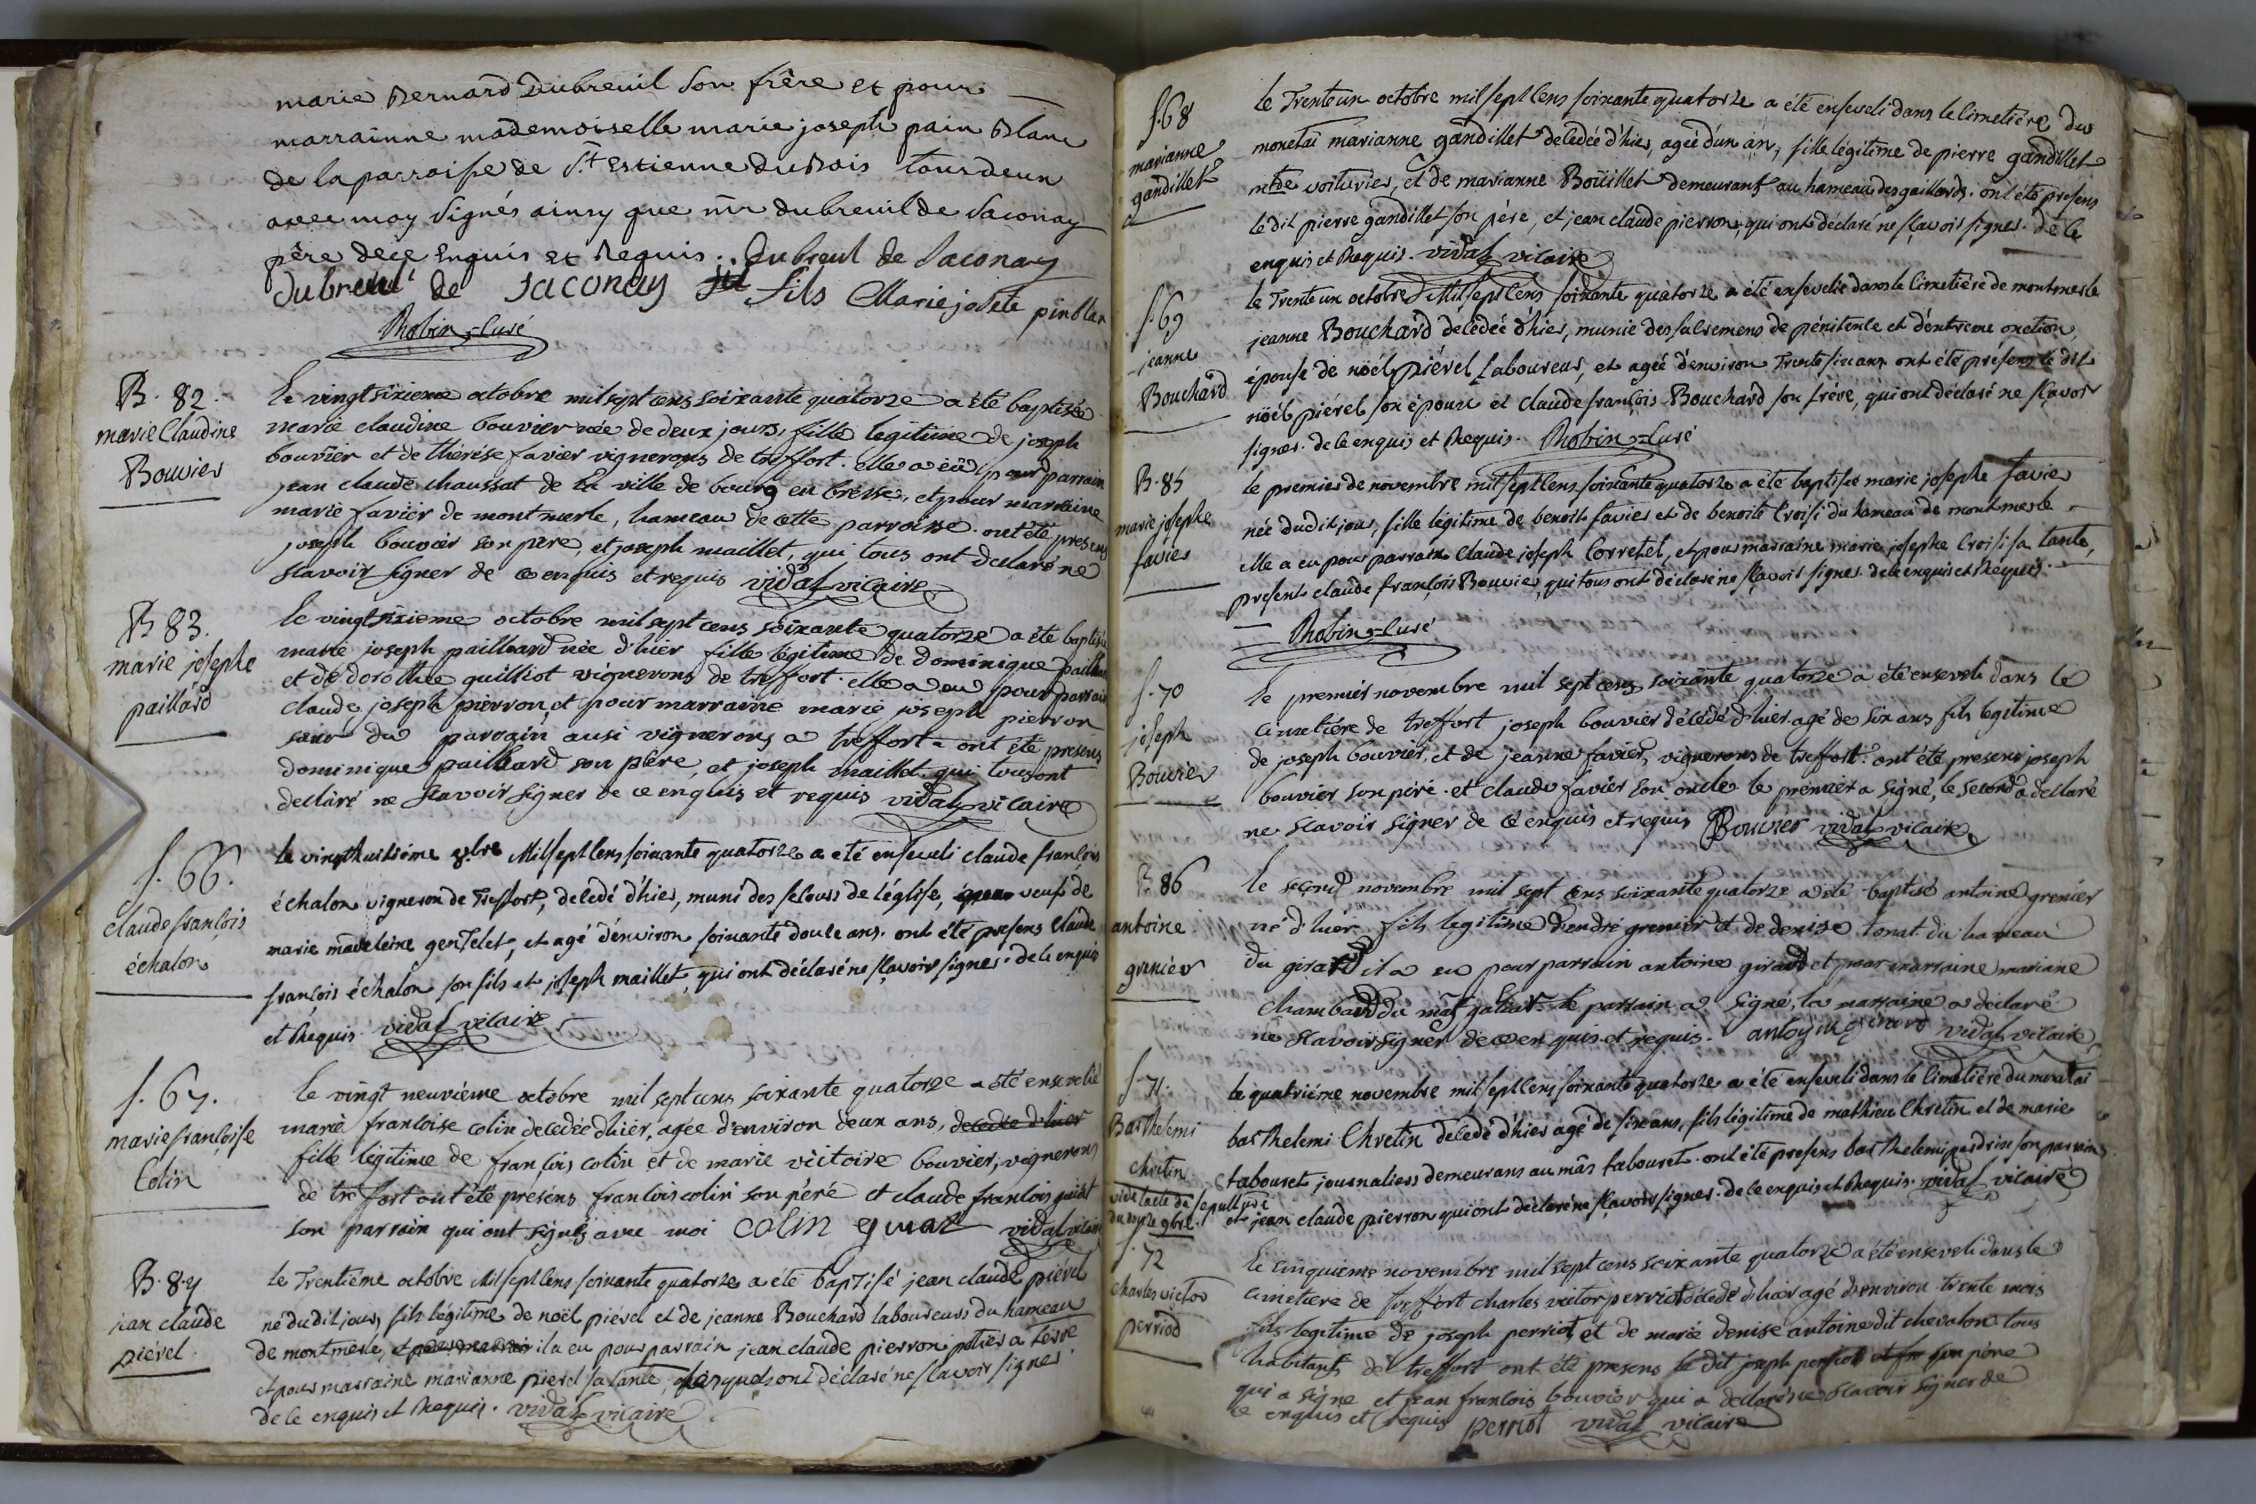 marie Bernard Dubreuil Son frère et pour
marrainne mademoiselle marie joseph pain Blanc
de la parroisse de St Estienne du Bois tous deux
avec moy signés ainsy que mr dubreuil de Saconay
père de ce enquis et Requis. Dubreul de Saconay
dubreuil de Saconay fils Marie josete pinblan
Robin curé
B. 82.
marie Claudine
Bouvier
Le vingt sixieme octobre mil sept cens soixante quatorze a été baptisée
marie claudine bouvier née de deux jours, fille legitime de joseph
bouvier et de thérése favier vignerons de treffort. elle a eû pour parrain
jean claude chaussat de la ville de bourg en bresse, et pour marraine
marie favier de montmerle, hameau de cette parroisse. ont été presens
joseph bouvier son pere, et joseph maillet, qui tous ont declaré ne
scavoir signer de ce enquis et requis vidal vicaire
B 83.
marie josephe
paillard
le vingt sixieme octobre mil sept cens soixante quatorze a été baptisée
marie joseph paillard née d'hier fille légitime de Dominique paillard
et de dorothée guilliot vignerons de treffort. elle a eu pour parrain
claude joseph pierron, et pour marraine marie joseph pierron
sœur du parrain ausi vignerons a treffort. ont été presens
dominique paillard son père, et joseph maillet qui tous ont
declaré ne scavoir signer de ce enquis et requis vidal vicaire
f. 66.
claude françois
échalon
le vingt huitiéme 8bre Mil sept cens soixante quatorze a été enseveli claude françois
échalon vigneron de Treffort, decedé d'hier, muni des secours de l'église, veuf de
marie madeleine gentelet, et agé d'environ soixante douze ans. ont été presens Claude
françois échalon son fils et joseph maillet, qui ont déclaré ne sçavoir signer. de ce enquis
et Requis. vidal vicaire
f. 67.
marie françoise
Colin
le vingt neuvième octobre mil sept cens soixante quatorze a été ensevelie
marie françoise colin decedée d'hier, agée d'environ deux ans, decedée d'hier
fille legitime de françois colin et de marie victoire bouvier, vignerons
de treffort ont été presens francois colin son péré et claude francois guiat
son parrain qui ont signés avec moi colin guiat vidal vicaire
B. 84
jean claude
piérel.
le Trentiéme octobre Mil sept cens soixante quatorze a été baptisé jean claude piérel
né du dit jour, fils légitime de noël piérel et de jeanne Bouchard laboureurs du hameau
de montmerle, et pour marrai il a eu pour parrain jean claude pierron potier a terre
et pour marraine marianne pierel sa tante, lesquels ont déclaré ne sçavoir signer
de ce enquis et Requis. vidal vicaire
f. 68
marianne
gandillet
le Trente un octobre mil sept cens soixante quatorze a été enseveli dans le cimetiére du
monetai marianne gandillet decedée d'hier, agée d'un an, fille légitime de pierre gandillet
mtde voiturier, et de marianne Boüillet demeurans au hameau des gaillards. ont été presens
le dit pierre gandillet son père, et jean claude pierron, qui ont déclaré ne sçavoir signer. de ce
enquis et Requis. vidal vicaire
f. 69
jeanne
Bouchard
le Trente un octobre Mil sept cens soixante quatorze a été ensevelie dans le cimetière de montmerle
jeanne Bouchard décédée d'hier, munie des sacremens de pénitence et d'extreme onction
épouse de nöel piérel Laboureur, et agée d'environ Trente six ans ont été présens le dit
nöel piérel son époux et claude françois Bouchard son frére, qui ont déclaré ne sçavoir
signer. de ce enquis et Requis. Robin curé
B. 85
marie josephe
favier
le premier de novembre mil sept cens soixante quatorze a été baptisée marie josephe favier
née du dit jour, fille légitime de benoit favier et de benoite Croisi du hameau de montmerle
elle a eu pour parrain Claude joseph Corretel, et pour marraine marie josephe Croisi sa tante,
presens claude françois Bouvier, qui tous ont déclaré ne sçavoir signer de ce enquis et Requis.
Robin curé
f. 70
joseph
Bouvier
le premier novembre mil sept cens soixante quatorze a été enseveli dans le
cimetiére de treffort joseph bouvier décédé d'hier agé de six ans fils legitime
de joseph bouvier, et de jeanne favier, vignerons de treffort. ont été presens joseph
bouvier son péré. et claude favier son oncle le premier a signé, le second a declaré
ne scavoir signer de ce enquis et requis Bouvier vidal vicaire
B. 86
antoine
grenier
le second novembre mil sept cens soixante quatorze a été baptisé antoine grenier
né d'hier fils legitime d'andré grenier et de denise tonat du hameau
du girard il a eu pour parrain antoine girard et pour marraine mariane
chambard du mas galiat. le parrain a signé, la marraine a déclaré
ne scavoir signer de ce enquis et requis. antoyne girard vidal vicaire
f. 71.
Barthelemi
chretin
vide l'acte de sepulture
du 9bre.
le quatriéme novembre mil sept cens soixante quatorze a été enseveli dans le cimetiére du monetai
barthelemi Chretin decedé d'hier agé de six ans, fils légitime de mathieu Chretin et de marie
tabouret journaliers demeurans au mâs tabouret. ont été presens barthelemi perdrix son parrain
et jean claude pierron qui ont déclaré ne sçavoir signer. de ce enquis et Requis. vidal vicaire
f. 72
charles victor
perriod
le cinquieme novembre mil sept cens soixante quatorze a été enseveli dans le
cimetiere de treffort charles victor perriot décedé d'hier agé d'environ trente mois
fils legitime de joseph perriot, et de marie denise antoine dit chevalon tous
habitants de treffort ont été presens le dit joseph perriot son père
qui a signé et jean francois bouvier qui a declaré ne scavoir signer de
ce enquis et requis perriot vidal vicaire